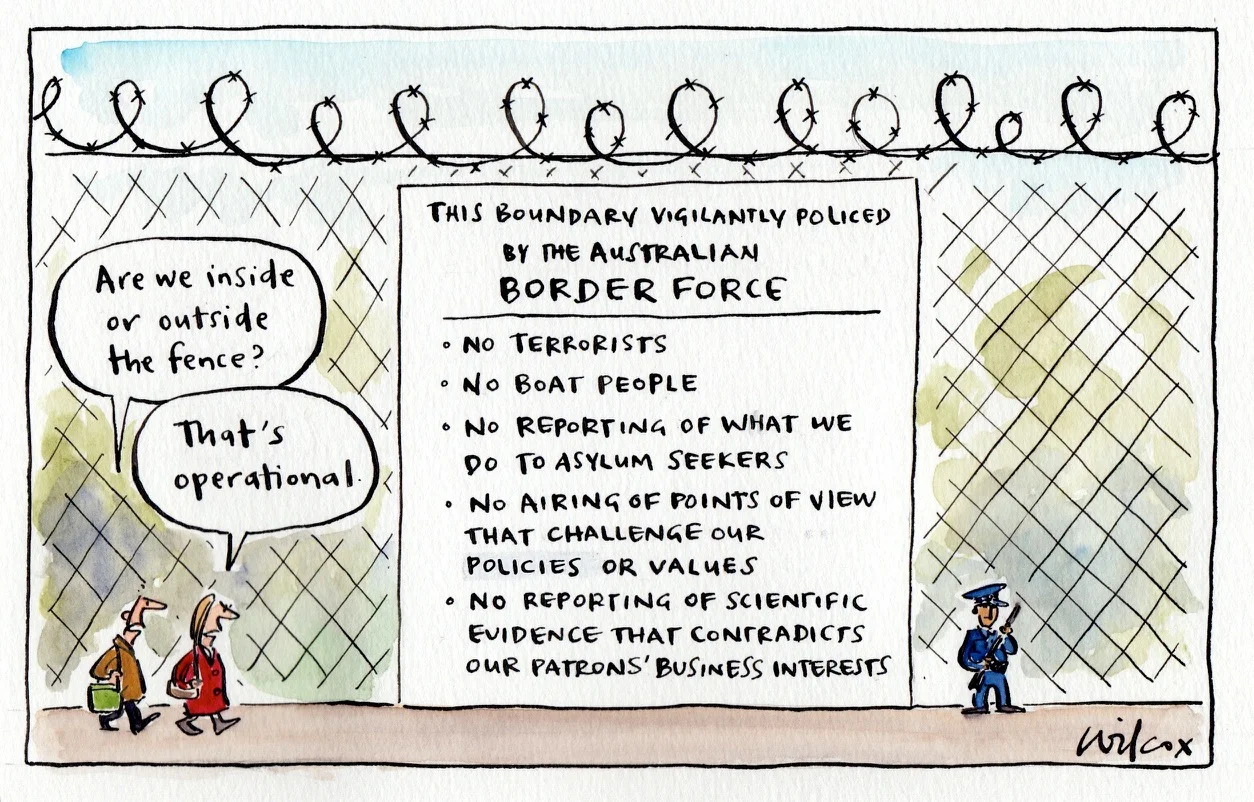 THIS BOUNDARY VIGILANTLY POLICED
BY THE AUSTRALIAN
BORDER FORCE
Are we inside
or outside
the fence?
That's
operational.
• NO TERRORISTS
• NO BOAT PEOPLE
• NO REPORTING OF WHAT WE
DO TO ASYLUM SEEKERS
• NO AIRING OF POINTS OF VIEW
THAT CHALLENGE OUR
POLICIES OR VALUES
• NO REPORTING OF SCIENTIFIC
EVIDENCE THAT CONTRADICTS
OUR PATRONS' BUSINESS INTERESTS
Wilcox